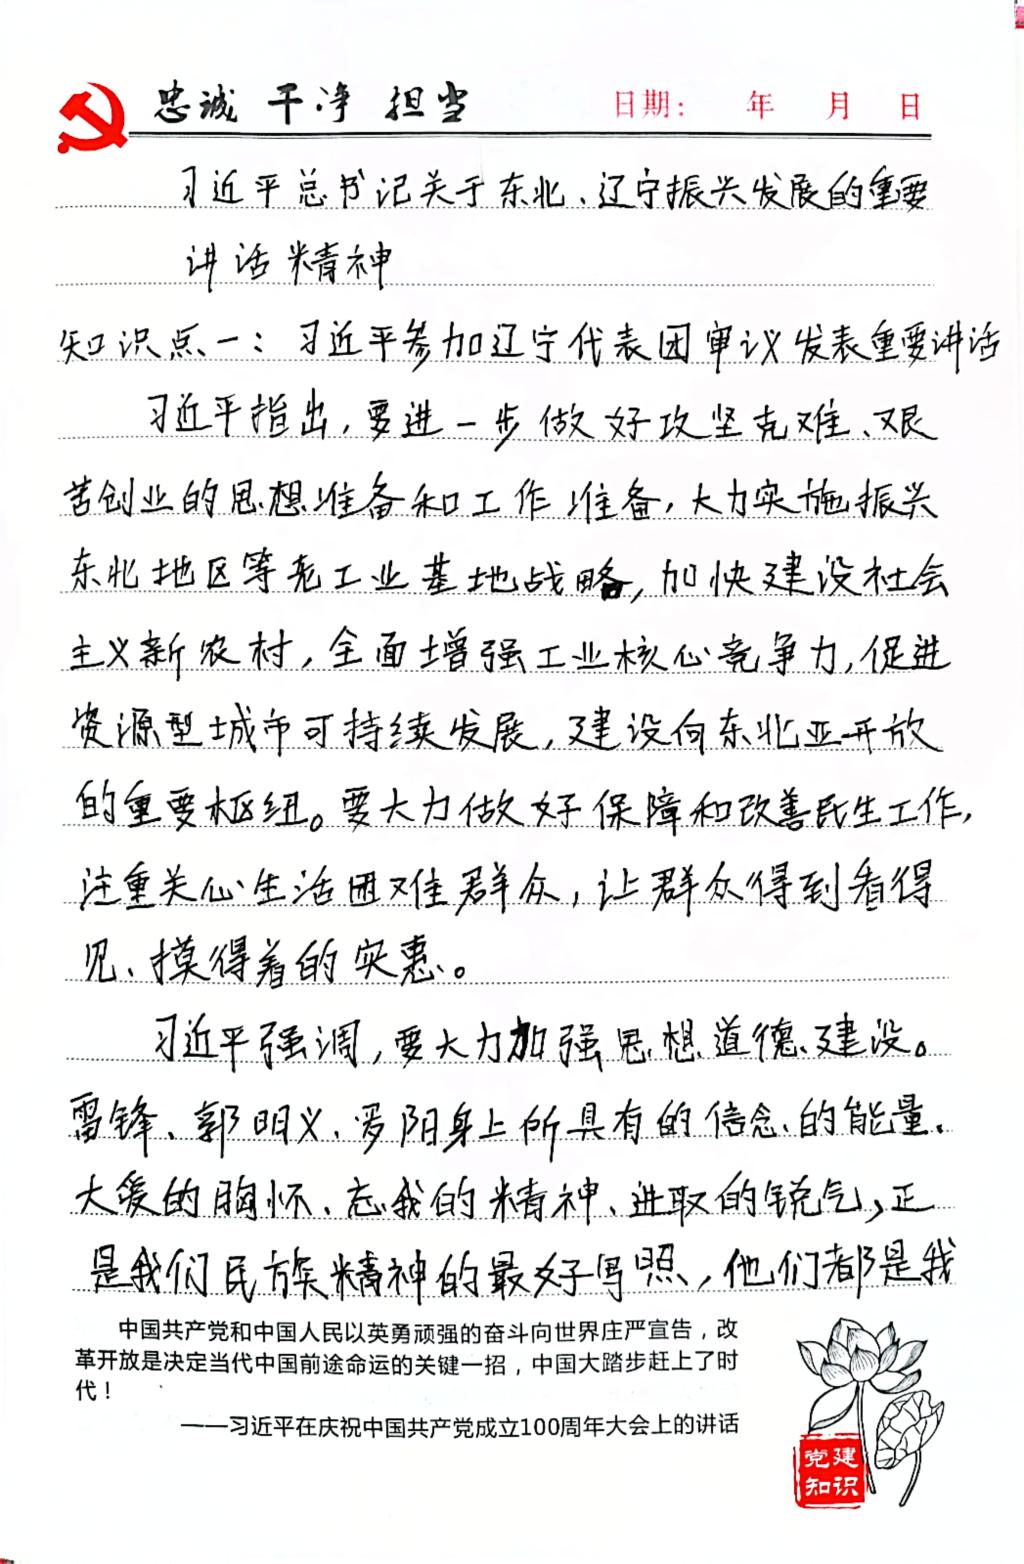 忠诚 干净 担当 日期： 年 月 日
习近平总书记关于东北、辽宁振兴发展的重要
讲话精神
知识点一：习近平参加辽宁代表团审议发表重要讲话
习近平指出，要进一步做好攻坚克难、艰
苦创业的思想准备和工作准备，大力实施振兴
东北地区等老工业基地战略，加快建设社会
主义新农村，全面增强工业核心竞争力，促进
资源型城市可持续发展，建设向东北亚开放
的重要枢纽。要大力做好保障和改善民生工作，
注重关心生活困难群众，让群众得到看得
见、摸得着的实惠。
习近平强调，要大力加强思想道德建设。
雷锋、郭明义、罗阳身上所具有的信念的能量、
大爱的胸怀、忘我的精神、进取的锐气，正
是我们民族精神的最好写照，他们都是我
中国共产党和中国人民以英勇顽强的奋斗向世界庄严宣告，改
革开放是决定当代中国前途命运的关键一招，中国大踏步赶上了时
代！
——习近平在庆祝中国共产党成立100周年大会上的讲话
党建
知识